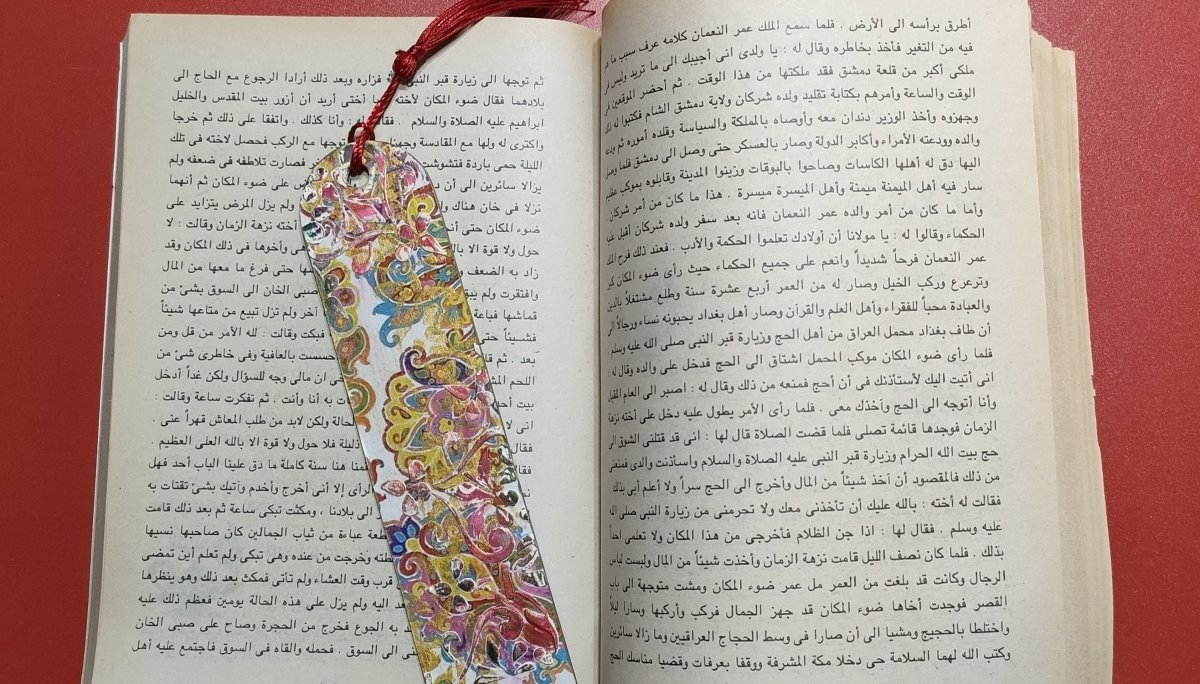 أطرق برأسه الى الأرض . فلما سمع الملك عمر النعمان كلامه عرف سبب ما
فيه من التغير فأخذ بخاطره وقال له : يا ولدى انى أجيبك الى ما تريد وليس فى
ملكى أكبر من قلعة دمشق فقد ملكتها من هذا الوقت . ثم أحضر الموقعين فى
الوقت والساعة وأمرهم بكتابة تقليد ولده شركان ولاية دمشق الشام فكتبوا له ذلك
وجهزوه وأخذ الوزير دندان معه وأوصاه بالمملكة والسياسة وقلده أموره ثم ودعه
والده وودعته الأمراء وأكابر الدولة وصار بالعسكر حتى وصل الى دمشق فلما وصل
اليها دق له أهلها الكاسات وصاحوا بالبوقات وزينوا المدينة وقابلوه بموكب عظيم
سار فيه أهل الميمنة ميمنة وأهل الميسرة ميسرة . هذا ما كان من أمر شركان
وأما ما كان من أمر والده عمر النعمان فانه بعد سفر ولده شركان أقبل عليه
الحكماء وقالوا له : يا مولانا أن أولادك تعلموا الحكمة والأدب . فعند ذلك فرح الملك
عمر النعمان فرحاً شديداً وانعم على جميع الحكماء حيث رأى ضوء المكان كبر
وترعرع وركب الخيل وصار له من العمر أربع عشرة سنة وطلع مشتغلاً بالدين
والعبادة محباً للفقراء وأهل العلم والقرآن وصار أهل بغداد يحبونه نساء ورجالاً الى
أن طاف بغداد محمل العراق من أهل الحج وزيارة قبر النبى صلى الله عليه وسلم
فلما رأى ضوء المكان موكب المحمل اشتاق الى الحج فدخل على والده وقال له :
انى أتيت اليك لأستأذنك فى أن أحج فمنعه من ذلك وقال له : اصبر الى العام المقبل
وأنا أتوجه الى الحج وآخذك معى . فلما رأى الأمر يطول عليه دخل على أخته نزهة
الزمان فوجدها قائمة تصلى فلما قضت الصلاة قال لها : انى قد قتلنى الشوق الى
حج بيت الله الحرام وزيارة قبر النبى عليه الصلاة والسلام واسأذنت والدى فمنعنى
من ذلك فالمقصود أن آخذ شيئاً من المال وأخرج الى الحج سراً ولا أعلم أبى بذلك
فقالت له أخته : بالله عليك أن تأخذنى معك ولا تحرمنى من زيارة النبى صلى الله
عليه وسلم . فقال لها : اذا جن الظلام فأخرجى من هذا المكان ولا تعلمى أحداً
بذلك . فلما كان نصف الليل قامت نزهة الزمان وأخذت شيئاً من المال ولبست لباس
الرجال وكانت قد بلغت من العمر مل عمر ضوء المكان ومشت متوجهة الى باب
القصر فوجدت أخاها ضوء المكان قد جهز الجمال فركب وأركبها وسارا ليلاً
واختلطا بالحجيج ومشيا الى أن صارا فى وسط الحجاج العراقيين وما زالا سائرين
وكتب الله لهما السلامة حى دخلا مكة المشرفة ووقفا بعرفات وقضيا مناسك الحج
ثم توجها الى زيارة قبر النبى فزاره وبعد ذلك أرادا الرجوع مع الحاج الى
بلادهما فقال ضوء المكان لأخته يا أختى أريد أن أزور بيت المقدس والخليل
ابراهيم عليه الصلاة والسلام . فقالت له : وأنا كذلك . واتفقا على ذلك ثم خرجا
واكترى له ولها مع المقادسة وجهزا توجها مع الركب فحصل لاخته فى تلك
الليلة حمى باردة فتشوشت فصارت تلاطفه فى ضعفه ولم
يزالا سائرين الى أن على ضوء المكان ثم أنهما
نزلا فى خان هناك ولم يزل المرض يتزايد على
ضوء المكان حتى أخته نزهة الزمان وقالت : لا
حول ولا قوة الا بالله وأخوها فى ذلك المكان وقد
زاد به الضعف حتى فرغ ما معها من المال
وافتقرت ولم صبى الخان الى السوق بشئ من
قماشها فباعه آخر ولم تزل تبيع من متاعها شيئاً
فشيئاً حتى فبكت وقالت : لله الأمر من قل ومن
بعد . ثم حسست بالعافية وفى خاطرى شئ من
اللحم ان مالى وجه للسؤال ولكن غداً أدخل
بيت أحد به أنا وأنت . ثم تفكرت ساعة وقالت :
انى لا الحالة ولكن لابد من طلب المعاش قهراً عنى .
فقال ذليلة فلا حول ولا قوة الا بالله العلى العظيم .
فقا هنا سنة كاملة ما دق علينا الباب أحد فهل
الرأى إلا أنى أخرج وأخدم وآتيك بشئ تقتات به
الى بلادنا . ومكثت تبكى ساعة ثم بعد ذلك قامت
قطعة عباءة من ثياب الجمالين كان صاحبها نسيها
وخرجت من عنده وهى تبكى ولم تعلم أين تمضى
قرب وقت العشاء ولم تأتى فمكث بعد ذلك وهو ينظرها
اليه ولم يزل على هذه الحالة يومين فعظم ذلك عليه
به الجوع فخرج من الحجرة وصاح على صبى الخان
الى السوق . فحمله والقاه فى السوق فاجتمع عليه أهل